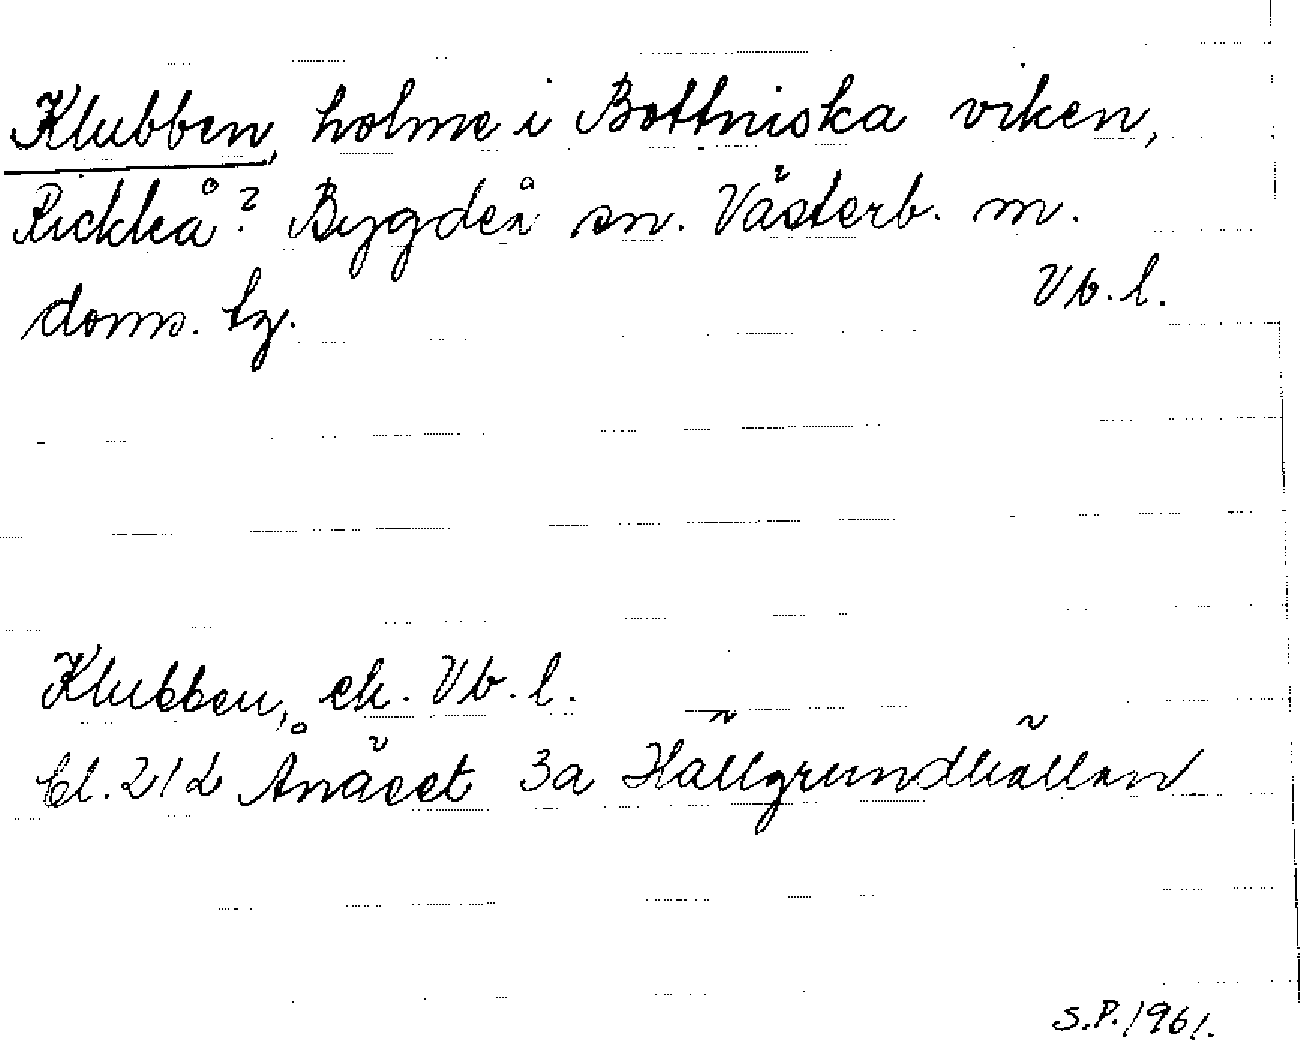 Klubben, holme i Bottniska viken,
Rickleå? Bygdeå sn. Västerb. m.
doms. tg.
Vb. l.
Klubben, ek. Vb. l.
bl. 21 L Ånäset 3a Hällgrundhällan
S.P. 1961.